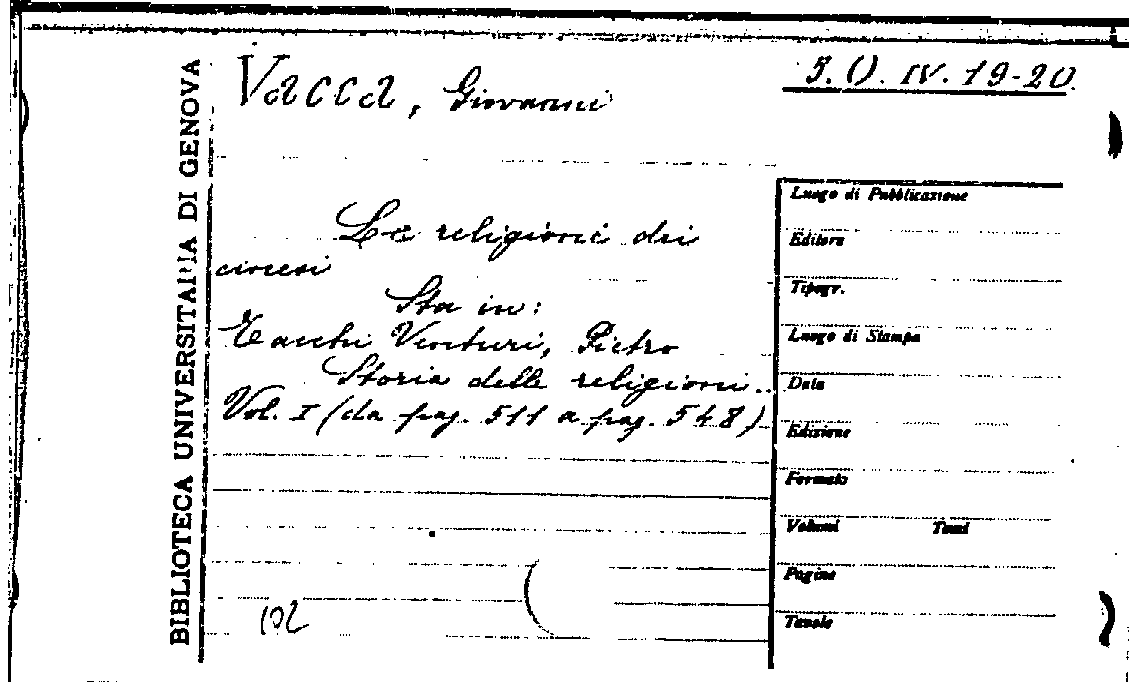 BIBLIOTECA UNIVERSITARIA DI GENOVA
Vacca, Giovanni
5. O. IV. 19-20.
Le religioni dei
cinesi
Sta in:
Tacchi Venturi, Pietro
Storia delle religioni..
Vol. I (da pag. 511 a pag. 548)
102
Luogo di Pubblicazione
Editore
Tipogr.
Luogo di Stampa
Data
Edizione
Formato
Volumi Tomi
Pagine
Tavole